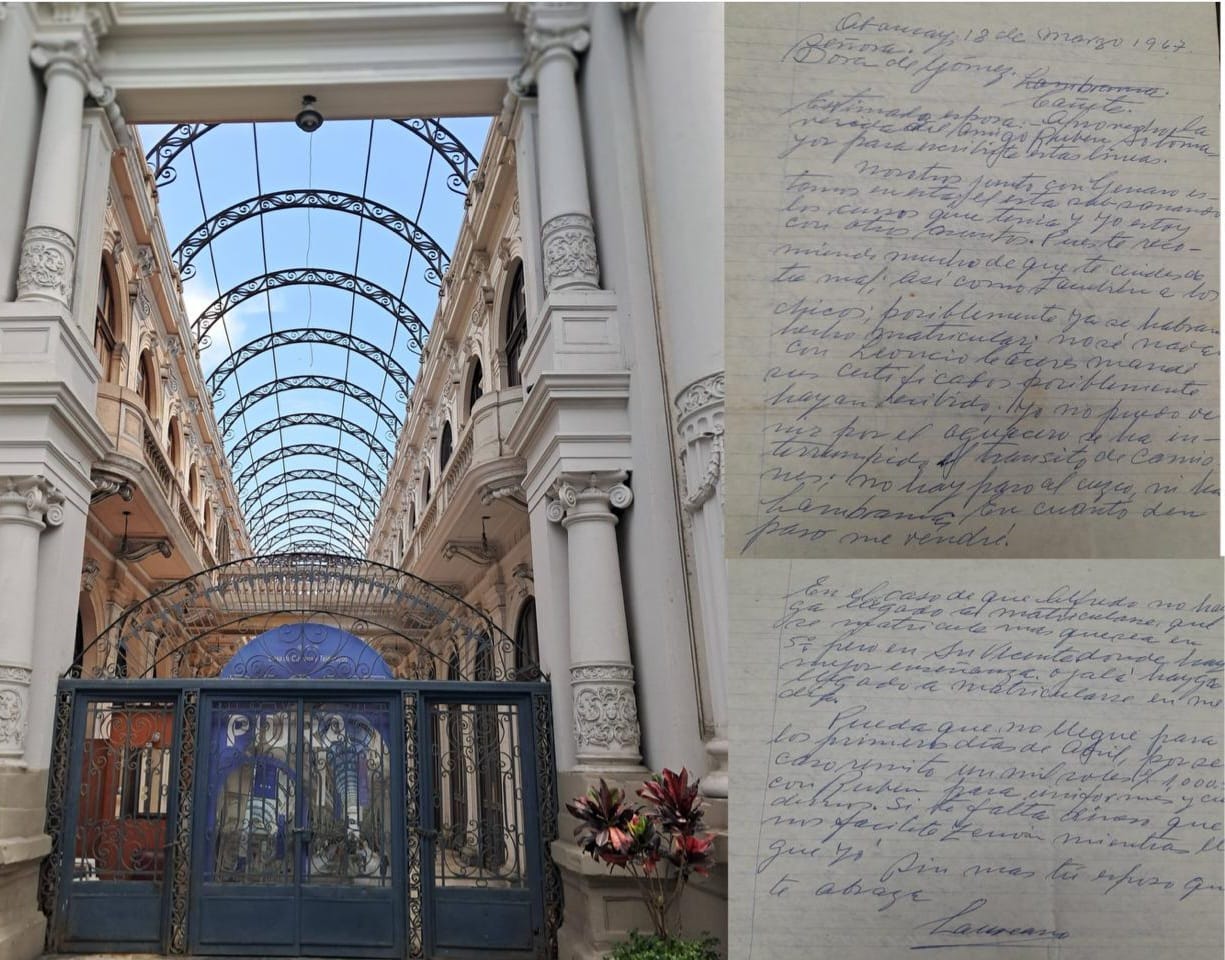 Casa de Correos y Telégrafos
Abancay, 18 de Marzo 1967
Señora:
Dora de Gómez. Lambrama.
Cañete.
Estimada esposa.- Aprovecho la
del amigo Ruben Sotoma-
yor para escribirte estas líneas.
Nosotros junto con Genaro es-
tamos en esta, el esta subsanando
los cursos que tenia y yo estoy
con otros asuntos. Pues te reco-
miendo mucho de que te cuides de
tu mal; así como tambien a los
chicos, posiblemente ya se habran
hecho matricular; no sé nada
con Leoncio Cáceres mandé
sus certificados posiblemente
hayan recibido. Yo no puedo ve-
nir por el aguacero se ha in-
terrumpido el tránsito de camio
nes: no hay paso al cuzco, ni ha
Lambrama, En cuanto den
paso me vendré.
En el caso de que Alfredo no ha
ga llegado a matricularse, que
se matricule mas que sea en
5º pero en Sn Vicente donde hay
mejor enseñanza. ojalá hayga
llegado a matricularse en
Pueda que no llegue para
los primeros días de Abril, por se
caso remito un mil soles 1,000.
con Ruben para uniformes y cu
dernos. Si te falta dinero que
nos facilite Zenón mientras lle
gue yo.
Sin mas tu esposo que
te abraza
Laureano